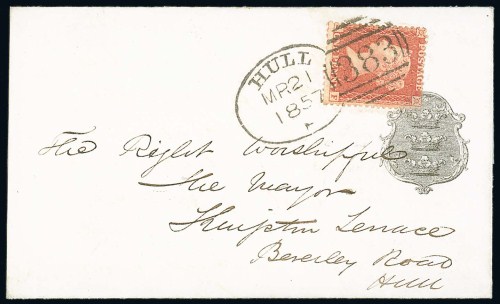 HULL
MR21
1857
383
The Right Worshipful
the Mayor
Terrace
Beverley Road
Hull